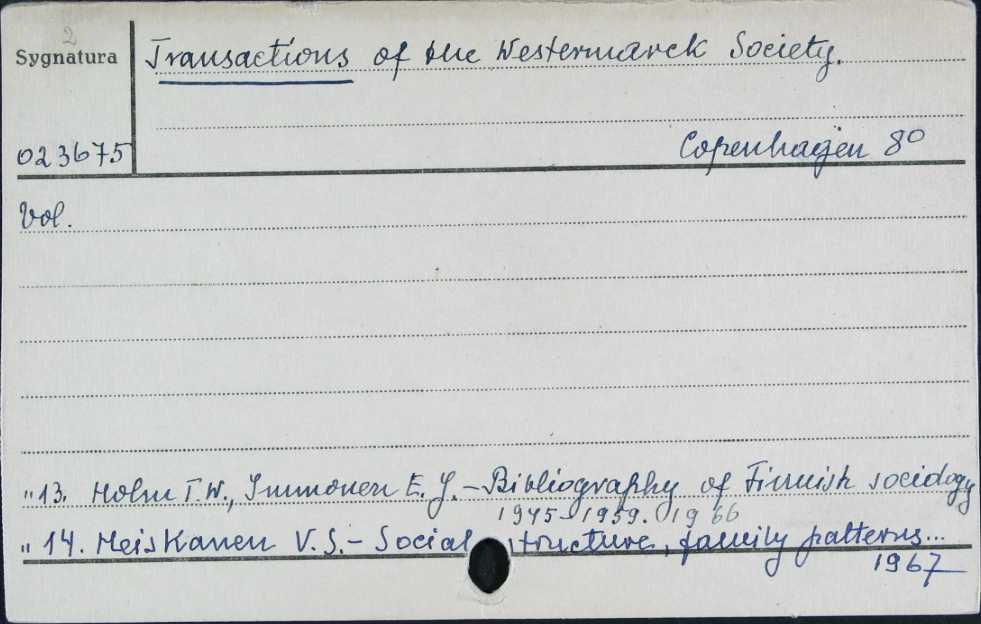 2
Sygnatura
Transactions of the Westermarck Society.
023675
Copenhagen 8⁰
Vol.
"13. Holm T.W., Immonen E. J. - Bibliography of Finnish sociology
1945-1959. 1966
" 14. Heiskanen V.S. - Social structure, family patterns...
1967